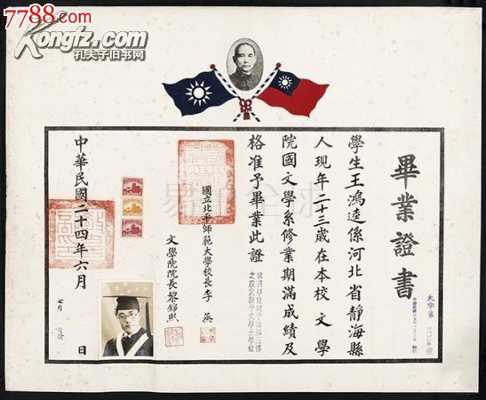 7788.com
Kongfz.com
孔夫子旧书网
畢業證書
學生王鴻逵係河北省靜海縣
人現年二十三歲在本校文學
院國文學系修業期滿成績及
格准予畢業此證
國立北平師範大學校長李蒸
文學院院長黎錦熙
中華民國二十四年六月
日